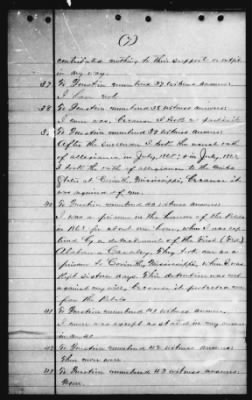 (7)
contributed nothing to their support or outfit
in any way.
37 To Question numbered 37 witness answers:
I have not
38 To Question numbered 38 witness answers:
I never was. Because I took no
39 To Question numbered 39 witness answers:
After the surrender I took the usual oath
of allegiance in July, & in July,
I took the oath of allegiance to the United
States at Corinth, Mississippi, because it
was required of me.
40 To Question numbered 40 witness answers:
I was a prisoner in the hands of the Rebels
in 186 for about one hour, when I was
by a detachment of the First (First)
Alabama Cavalry. They took me as a
prisoner to Corinth, Mississippi, when I was
kept sixteen days. This detention was not
against my will, because it protected me
from the Rebels
41 To Question numbered 41 witness answers:
I never was except as stated in my answer
in no. 40
42 To Question numbered 42 witness answers:
None ever were
43 To Question numbered 43 witness answers:
None.